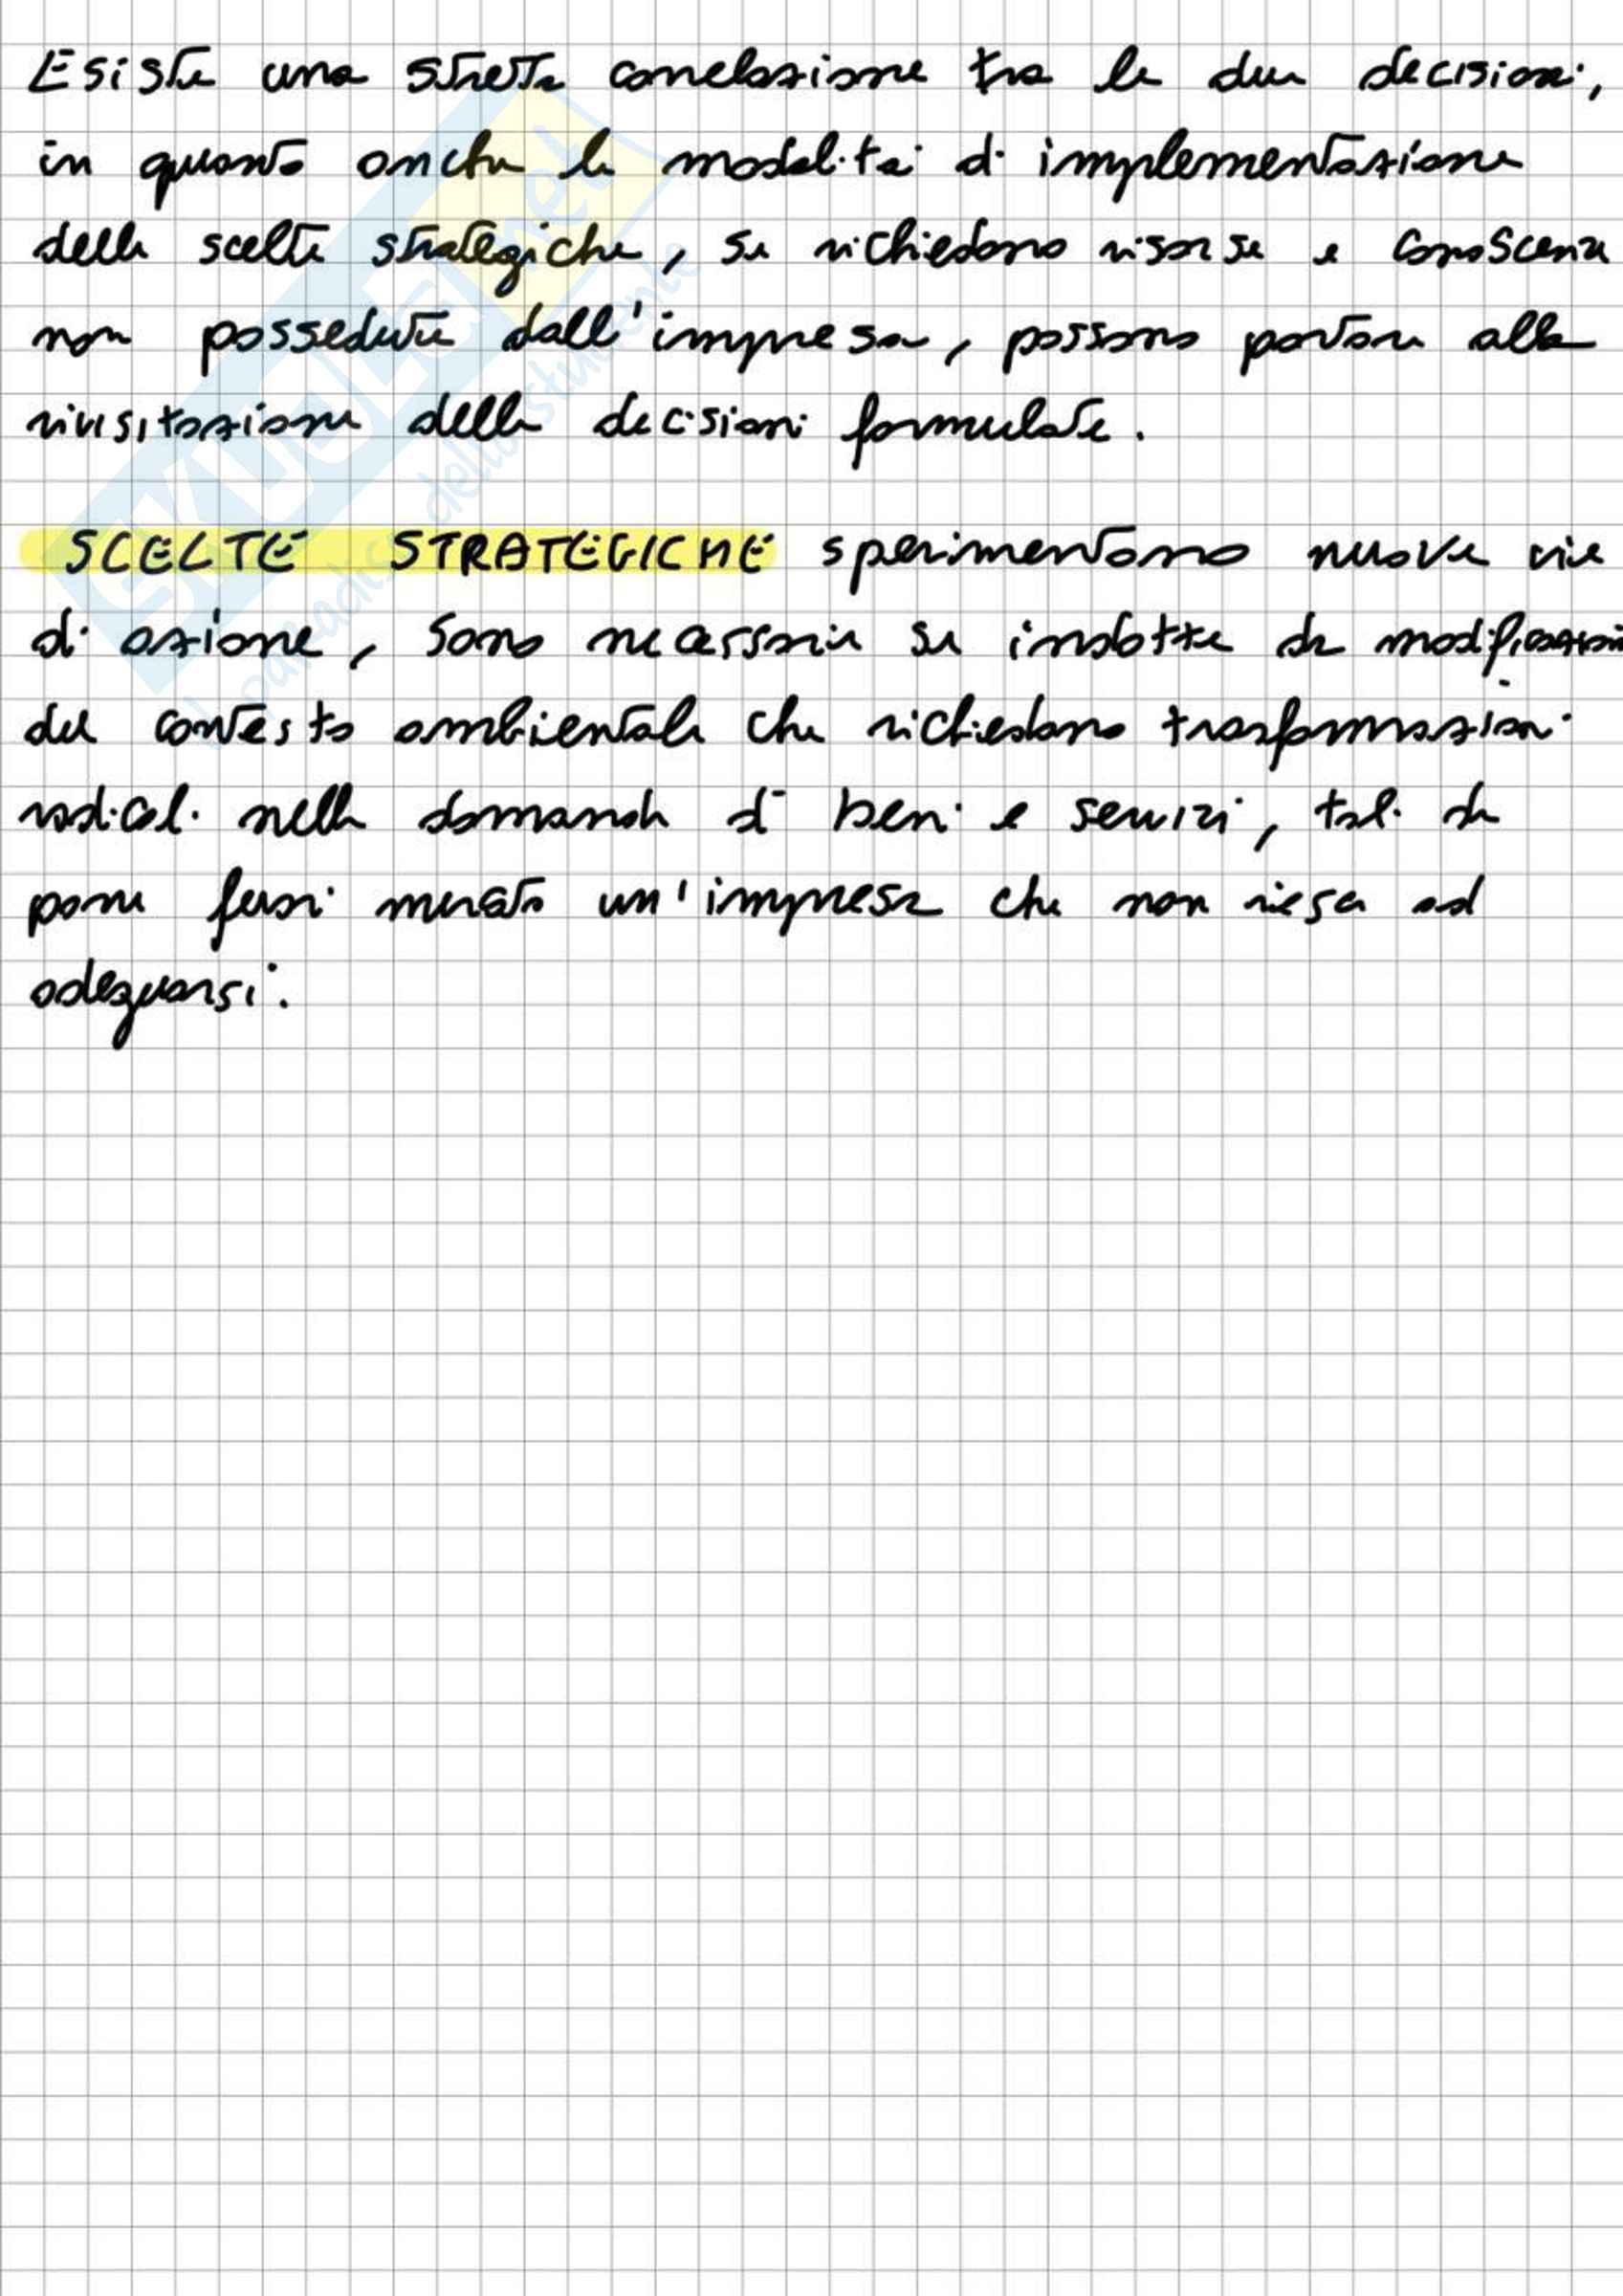 Esiste una stretta correlazione tra le due decisioni,
in quanto anche le modalità di implementazione
delle scelte strategiche, se richiedono risorse e conoscenze
non possedute dall'impresa, possono portare alla
rivisitazione delle decisioni formulate.
SCELTE STRATEGICHE sperimentano nuove vie
di azione, sono necessarie se indotte da modificazioni
del contesto ambientale che richiedono trasformazioni
radicali nella domanda di beni e servizi, tali da
porre fuori mercato un'impresa che non riesca ad
adeguarsi.
SKUOLA.net
il paradiso dello studente